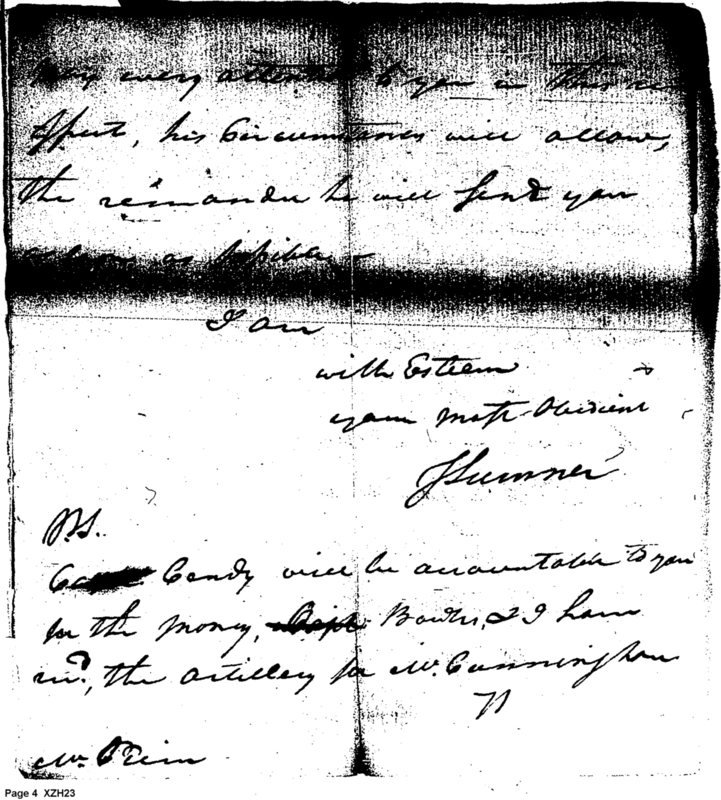 every attention to you in this re
spect, his Circumstances will allow,
the remander he will Send you
as soon as possible –
I am
with Esteem
your Most Obedient
J Sumner
P.S.
Candy will be accountable to you
for the money, Bowles, & I have
the artillery for Mr. Cunningham
Mr.
Page 4 XZH23